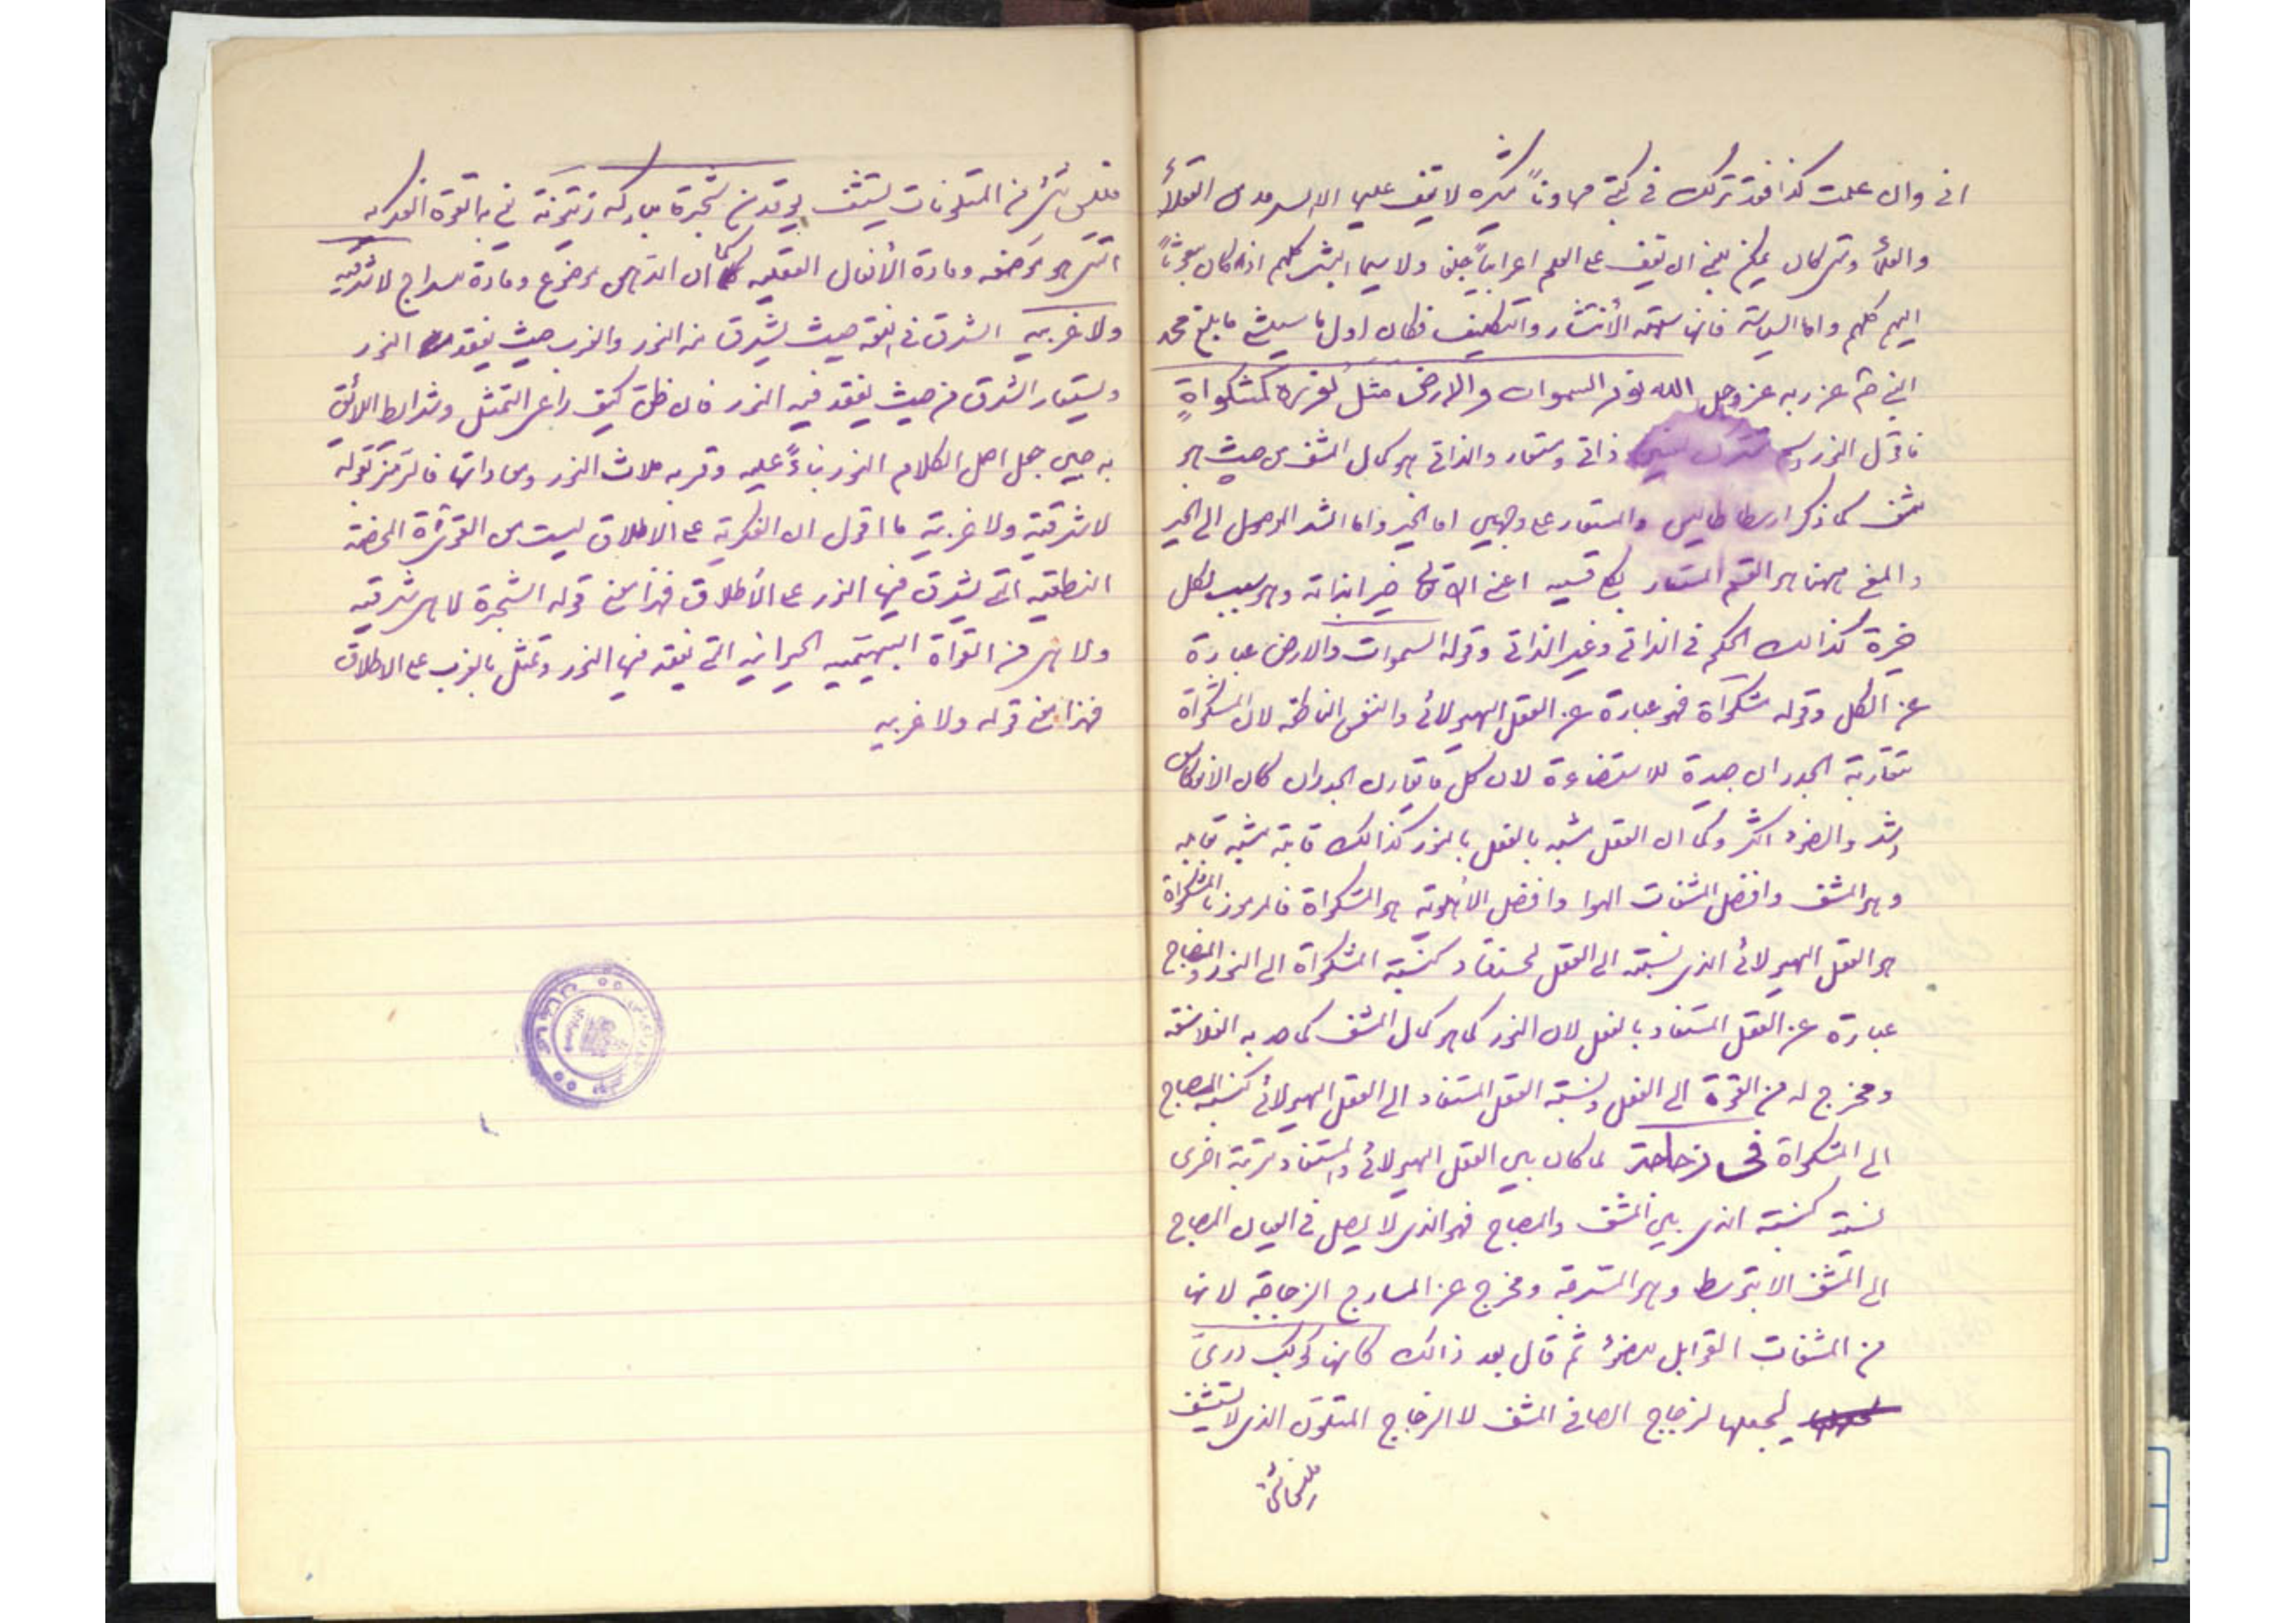 اني وان علمت كذا فقد تركت في كتبي لا يقف عليها الا العقلاء
والعلماء ومتى كان يمكن النبي ان يقف على العلم اعرابياً ولا سيما البشر كلهم اذا كان مبعوثاً
اليهم كلهم واما السياسة فانها سهلة والتكليف فكان اول ما بلغ محمد
النبي عن ربه عز وجل الله نور السموات والارض مثل نوره كمشكواةٍ
فاقول النور مشترك لمعنيين ذاتي ومستعار والذاتي هو كمال المشف من حيث هو
مشف كما ذكر ارسطاطاليس والمستعار على وجهين اما الخير واما الموصل الى الخير
والمعنى ههنا هو القسم المستعار اعني خير بذاته وهو سبب لكل
خيرة كذالك الحكم في الذاتي وغير الذاتي وقوله السموات والارض عبارة
عن الكل وقوله مشكواة فهو عبارة عن العقل الهيولائي والنفس الناطقه لان المشكواة
متقاربة الجدران جيدة للاستضاءة لان كل ما تقارب الجدران كان الانعكاس
اشد والضوء اكثر وكما ان العقل مشبه بالفعل بالنور كذالك قابله
وهو المشف وافضل المشفات الهوا وافضل الأهوية هو المشكواة فالمرموز بالمشكواة
هو العقل الهيولائي الذي نسبته الى العقل المستفاد كنسبة المشكواة الى النور والمصباح
عبارة عن العقل المستفاد بالفعل لان النور كما هو كمال المشف كما حد به الفلاسفه
ومخرج له من القوة الى الفعل ونسبة العقل المستفاد الى العقل الهيولائي كنسبة المصباح
الى المشكواة في زجاجة لما كان بين العقل الهيولائي والمستفاد مرتبة اخرى
نسبة كنسبة الذي بين المشف والمصباح فهو الذي لا يصل في العيان المصباح
الى المشف الا بتوسط وهو المسرجه ومخرج عن المسارج الزجاجة لانها
من المشفات القوابل للضوء ثم قال بعد ذالك كانها كوكب دري
ليجعلها الزجاج الصافي المشف لا الزجاج المتلون الذي لا يستشف
فليس شيء من المتلونات يستشف يوقد من شجرة مباركه زيتونة يعني بها القوة الفكريه
التي هو موضعه ومادة الأفعال العقليه كما ان الدهن موضوع ومادة للسراج لا شرقيه
ولا غربيه الشرق في اللغة حيث يشرق منه النور والغرب حيث يفقد النور
ويستعار الشرق من حيث يفقد فيه النور كيف راعى التمثل وشرايط اللائق
به حين جعل اصل الكلام النور بناءً عليه وقرنه النور ومعادنها فالرمز بقوله
لا شرقية ولا غربية ما اقول ان الفكرية على الاطلاق ليست من القوة المحضة
النطقيه التي يشرق فيها النور على الأطلاق فهذا معنى قوله الشجرة لا هي شرقيه
ولا هي من القواة البهيميه الحيوانيه التي يفقد فيها النور وتمثل بالغرب على الاطلاق
فهذا معنى قوله ولا غربيه